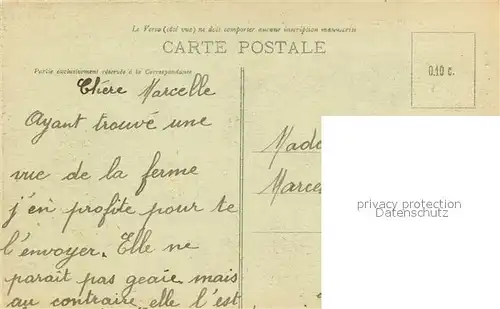 Le Verso (côté vue) ne doit comporter aucune inscription manuscrite
CARTE POSTALE
Partie exclusivement réservée à la Correspondance
0.10 c.
Chère Marcelle
Ayant trouvé une
vue de la ferme
j'en profite pour te
l'envoyer. Elle ne
parait pas geaie mais
au contraire elle l'est
Mada
Marcel
privacy protection
Datenschutz